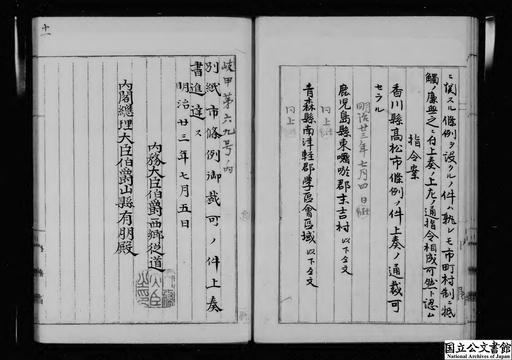 ニ関スル條例ヲ設クルノ件ハ孰レモ市町村制ニ抵
觸ノ廉無之ニ付上奏ノ上左ノ通指令相成可然ト認ム
指令案
香川縣高松市條例ノ件上奏ノ通裁可
セラル
明治廿三年七月四日
鹿児島縣東囎唹郡末吉村 以下全文
同上
青森縣南津軽郡學區會區域 以下全文
同上
十一
岐甲第六九号ノ内
別紙市條例御裁可ノ件上奏
書進達ス
明治廿三年七月五日
内務大臣伯爵西郷従道
内閣總理大臣伯爵山縣有朋殿
国立公文書館
National Archives of Japan